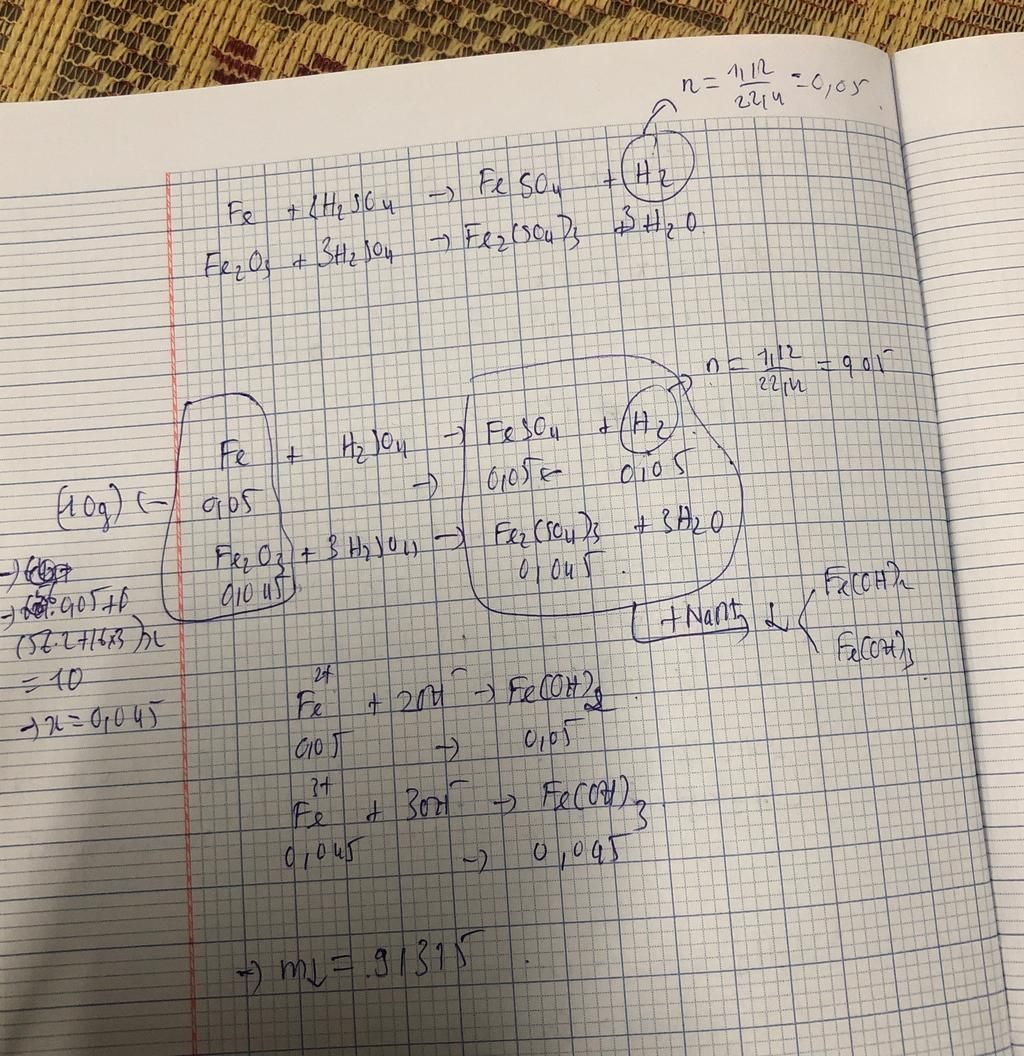 n = 1,12/22,4 = 0,05
Fe + H2SO4 → FeSO4 + H2
Fe2O3 + 3H2SO4 → Fe2(SO4)3 + 3H2O
n = 1,12/22,4 = 0,05
Fe + H2SO4 → FeSO4 + H2
(10g) ← 0,05 → 0,05 ← 0,05
Fe2O3 + 3H2SO4 → Fe2(SO4)3 + 3H2O
0,045 0,045
→
→ 0,05+
(56.2+16x3)x
= 10
→ x = 0,045
+ ↓ Fe(OH)2
Fe(OH)3
Fe2+ + 2OH- → Fe(OH)2
0,05 → 0,05
Fe3+ + 3OH- → Fe(OH)3
0,045 → 0,045
→ m↓ = 9,315